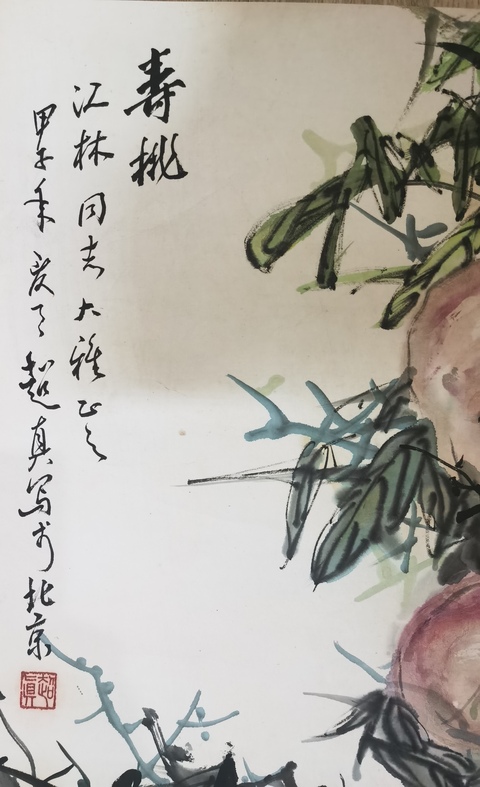 寿桃
江林同志大雅正之
甲子年夏 超真写于北京
超真